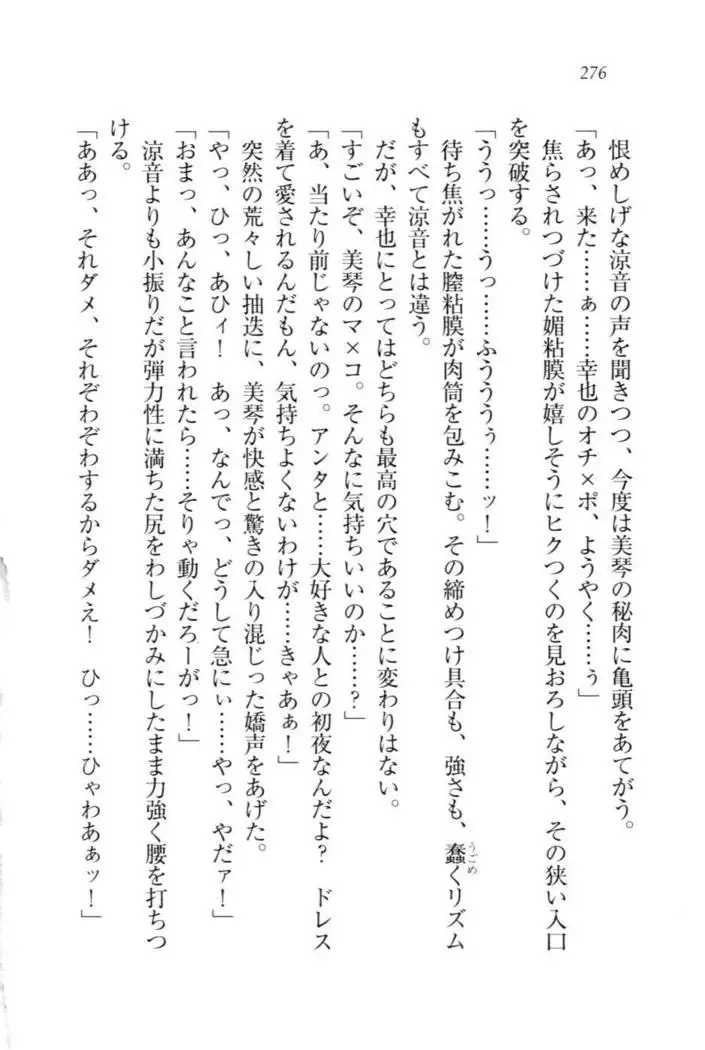 276
恨めしげな涼音の声を聞きつつ、今度は美琴の秘肉に亀頭をあてがう。
「あっ、来た……ぁ……幸也のオチ×ポ、ようやく……ぅ」
焦らされつづけた媚粘膜が嬉しそうにヒクつくのを見おろしながら、その狭い入口
を突破する。
「ううっ……うっ……ふうううぅ……ッ！」
待ち焦がれた膣粘膜が肉筒を包みこむ。その締めつけ具合も、強さも、蠢くリズム
うごめ
もすべて涼音とは違う。
だが、幸也にとってはどちらも最高の穴であることに変わりはない。
「すごいぞ、美琴のマ×コ。そんなに気持ちいいのか……？」
「あ、当たり前じゃないのっ。アンタと……大好きな人との初夜なんだよ？　ドレス
を着て愛されるんだもん、気持ちよくないわけが……きゃあぁ！」
突然の荒々しい抽送に、美琴が快感と驚きの入り混じった嬌声をあげた。
「やっ、ひっ、あひィ！　あっ、なんでっ、どうして急にぃ……やっ、やだァ！」
「おまっ、あんなこと言われたら……そりゃ動くだろーがっ！」
涼音よりも小振りだが弾力性に満ちた尻をわしづかみにしたまま力強く腰を打ちつ
ける。
「ああっ、それダメ、それぞわぞわするからダメえ！　ひっ……ひゃわあぁッ！」